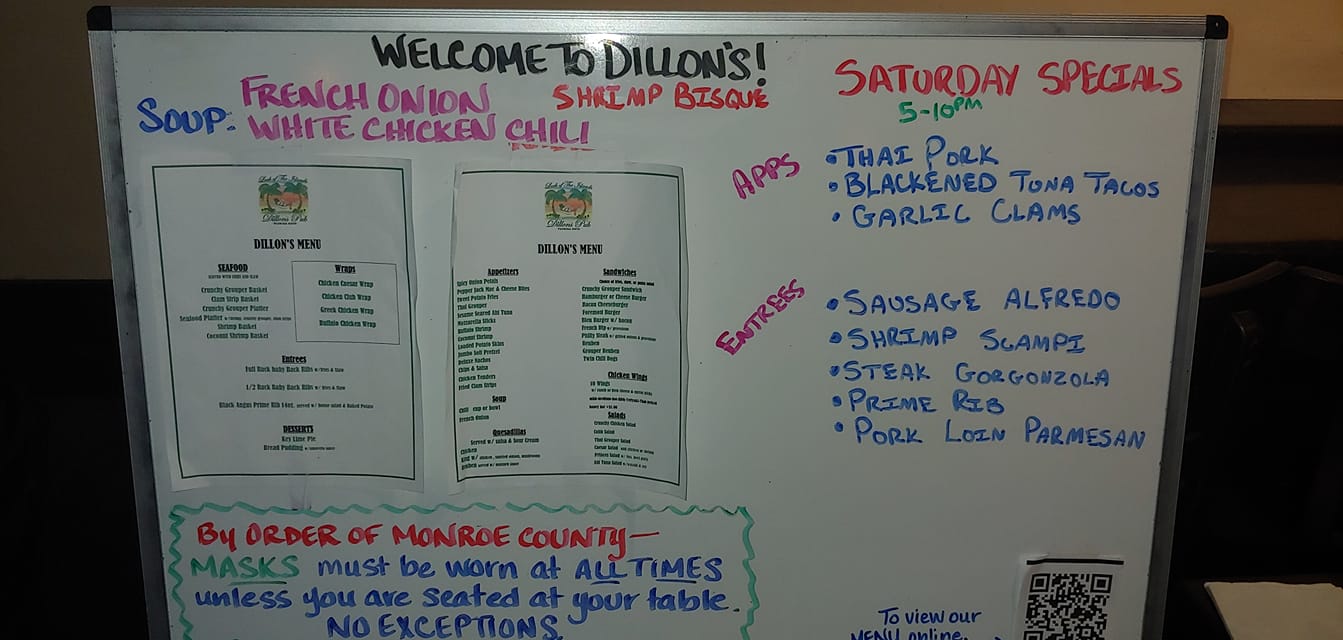 WELCOME TO DILLON'S!
SOUP:
FRENCH ONION
SHRIMP BISQUE
WHITE CHICKEN CHILI
Dillons Pub
DILLON'S MENU
SEAFOOD
Crunchy Grouper Basket
Clam Strip Basket
Crunchy Grouper Platter
Seafood Platter
Shrimp Basket
Coconut Shrimp Basket
Wraps
Chicken Caesar Wrap
Chicken Club Wrap
Greek Chicken Wrap
Buffalo Chicken Wrap
Entrees
Full Rack baby Back Ribs w/fries & Slaw
1/2 Rack Baby Back Ribs w/ fries & Slaw
Black Angus Prime Rib 14oz. served w/ house salad & Baked Potato
DESSERTS
Key Lime Pie
Bread Pudding
Dillons Pub
DILLON'S MENU
Appetizers
Pepper Jack Mac & Cheese Bites
Sweet Potato Fries
Thai Grouper
Sesame Seared Ahi Tuna
Mozzarella Sticks
Buffalo Shrimp
Coconut Shrimp
Loaded Potato Skins
Jumbo Soft Pretzel
Deluxe Nachos
Chips & Salsa
Chicken Tenders
Fried Clam Strips
Soup
Chili cup or bowl
French Onion
Quesadillas
Served w/ salsa & Sour Cream
Chicken
Sandwiches
Crunchy Grouper Sandwich
Hamburger or Cheese Burger
Bacon Cheeseburger
Foremost Burger
Bleu Burger w/ bacon
French Dip
Philly Steak
Reuben
Grouper Reuben
Twin Chili Dogs
Chicken Wings
10 Wings
Salads
Crunchy Chicken Salad
Cobb Salad
Thai Grouper Salad
Caesar Salad
Ahi Tuna Salad
SATURDAY SPECIALS
5-10PM
APPS
• THAI PORK
• BLACKENED TUNA TACOS
• GARLIC CLAMS
ENTREES
• SAUSAGE ALFREDO
• SHRIMP SCAMPI
• STEAK GORGONZOLA
• PRIME RIB
• PORK LOIN PARMESAN
By ORDER OF MONROE COUNTY—
MASKS must be worn at ALL TIMES
unless you are seated at your table.
NO EXCEPTIONS.
To view our
MENU online